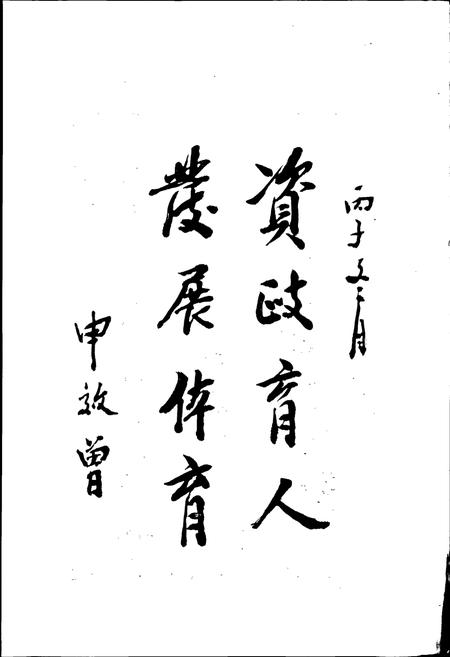 丙子冬月
資政育人
發展体育
申效曾